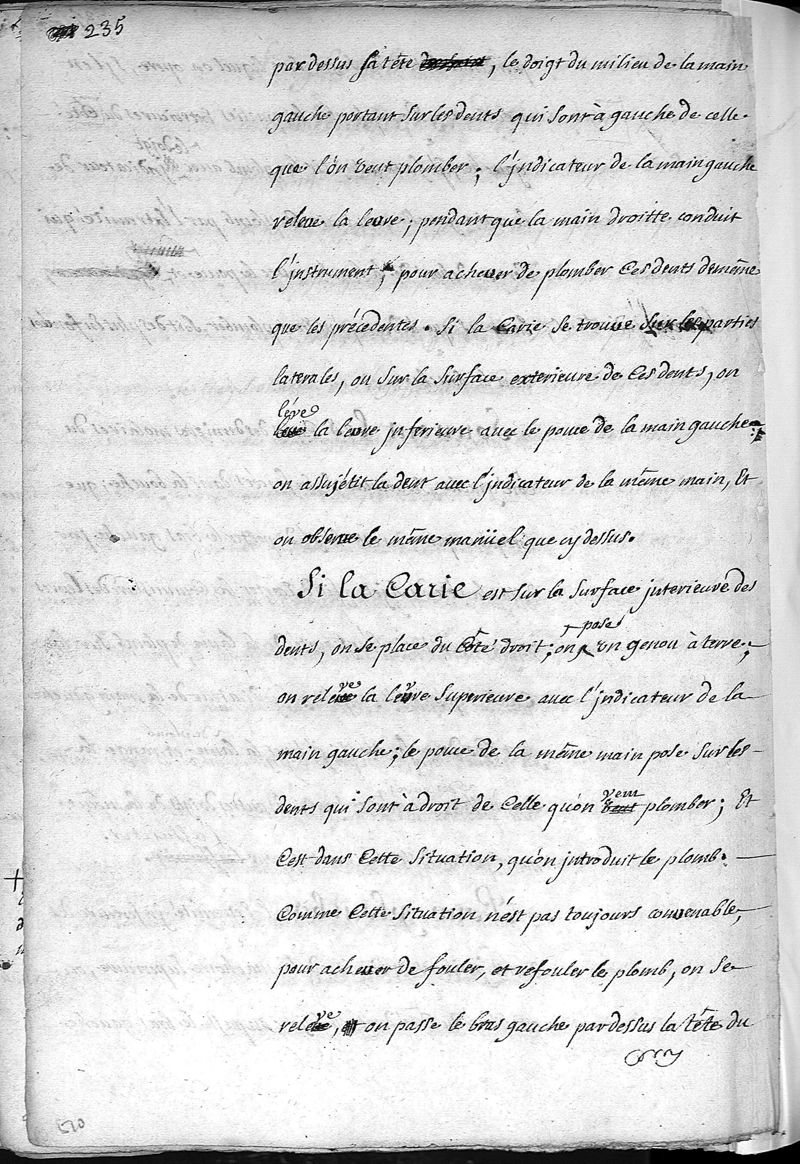 235
par dessus sa tête, le doigt du milieu de la main
gauche portant sur les dents qui sont à gauche de celle
que l'on veut plomber; l'jndicateur de la main gauche
releve la levre; pendant que la main droitte conduit
l'jnstrument; pour achever de plomber ces dents de même
que les précedentes. Si la Carie se trouve sur les parties
laterales, ou sur la surface exterieure de ces dents, on
léve
la levre jnferieure avec le pouce de la main gauche
on assujétit la dent avec l'jndicateur de la même main, Et
on observe le même manüel que cy dessus.
Si la Carie est sur la surface jnterieure des
dents, on se place du côté droit; on pose un genou à terre;
on releve la levre superieure avec l'jndicateur de la
main gauche; le pouce de la même main pose sur les
dents qui sont à droit de Celle qu'on veut plomber; Et
C'est dans Cette situation, qu'on jntroduit le plomb.
Comme Cette situation n'est pas toujours convenable,
pour achever de fouler, et refouler le plomb, on se
releve, on passe le bras gauche par dessus la tête du
570